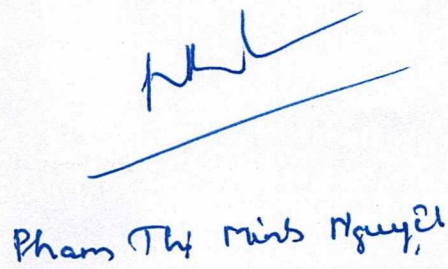 Phạm Thị Minh Nguyệt